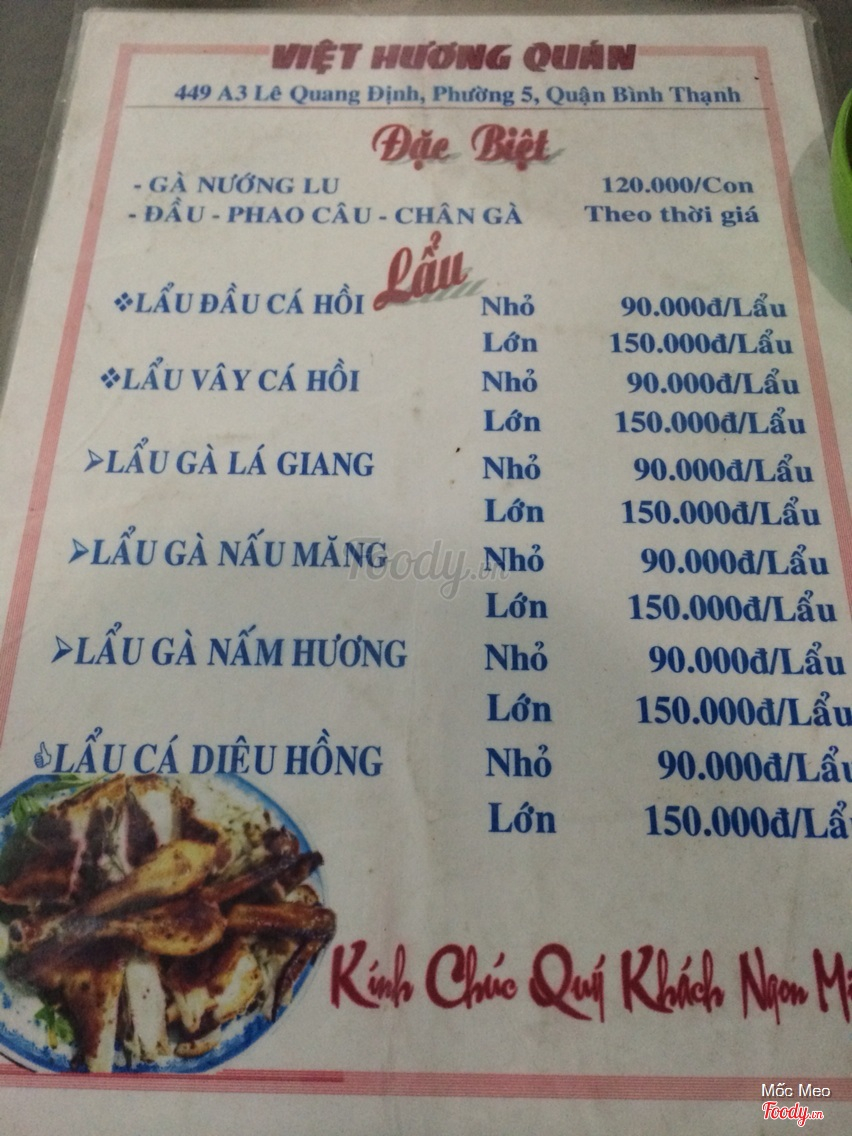 VIỆT HƯƠNG QUÁN
449 A3 Lê Quang Định, Phường 5, Quận Bình Thạnh
Đặc Biệt
- GÀ NƯỚNG LU 120.000/Con
- ĐẦU - PHAO CÂU - CHÂN GÀ Theo thời giá
Lẩu
❖LẨU ĐẦU CÁ HỒI Nhỏ 90.000đ/Lẩu
Lớn 150.000đ/Lẩu
❖LẨU VÂY CÁ HỒI Nhỏ 90.000đ/Lẩu
Lớn 150.000đ/Lẩu
➢LẨU GÀ LÁ GIANG Nhỏ 90.000đ/Lẩu
Lớn 150.000đ/Lẩu
➢LẨU GÀ NẤU MĂNG Nhỏ 90.000đ/Lẩu
Lớn 150.000đ/Lẩu
➢LẨU GÀ NẤM HƯƠNG Nhỏ 90.000đ/Lẩu
Lớn 150.000đ/Lẩu
👍LẨU CÁ DIÊU HỒNG Nhỏ 90.000đ/Lẩu
Lớn 150.000đ/Lẩ
Kính Chúc Quý Khách Ngon
Foody.vn
Mốc Meo
Foody.vn